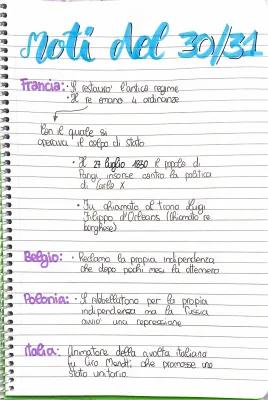 Moti del 30/31
Francia: • Si restaurò l'antico regime
• Il re emanò 4 ordinanze
Con il quale si
operava il colpo di stato
• Il 27 luglio 1830 il popolo di
Parigi insorse contro la politica
di Carlo X
• Fu chiamato al trono Luigi
Filippo d'Orleans (chiamato re
borghese)
Belgio: • Reclamò la propia indipendenza
che dopo pochi mesi la ottennero
Polonia: • Si ribellarono per la propia
indipendenza ma la Russia
avviò una repressione
Italia: Animatore della rivolta italiana
fu Ciro Menotti, che promosse uno
stato unitario